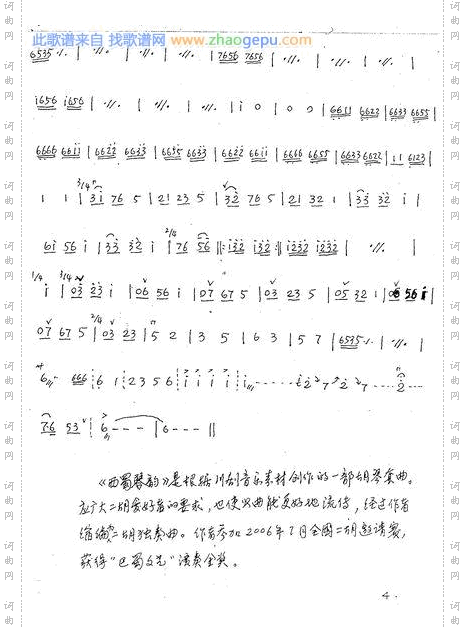 此歌谱来自 找歌谱网 www.zhaogepu.com
6535 ·/. | ·//. | ·//. | ·//. | 7656 7656 | ·//. | ·//. | ·//. |
i656 i656 | ·//. | ·//. | ·//. | i 0 | 0 0 | 6611 6622 | 6633 6655 |
6666 6611 | 6622 6633 | 6655 6633 | 6622 6611 | 6666 6655 | 6633 6622 | 11 6123 |
1 1 | 3/4 3i 76 5 | 21 23 5 | 32 76 5 | 21 32 1 | 33 32 i |
6i 56 i | 33 32 i | 2/4 76 56 ‖: i232 i232 :‖ i232 i232 | ·//. |
1/4 i | 3/4 03 23 i | 06 56 i | 07 67 5 | 03 23 5 | 05 32 1 | 56 i |
07 67 5 | 2/4 03 23 | 5 2 | 3 5 | 6 3 | 5 7 | 6535 ·/. | ·//. |
666 6 1 2 3 5 6 i i i i
76 53 6 - - - | 6 - - - ‖
《西蜀琴韵》是根据川剧音乐素材创作的一部胡琴套曲。
应广大二胡爱好者的要求，也使以曲能更好地流传，经过作者
缩编二胡独奏曲。作者参加2006年7月全国二胡邀请赛，
获得"巴蜀文艺"演奏金奖。
4.
词曲网